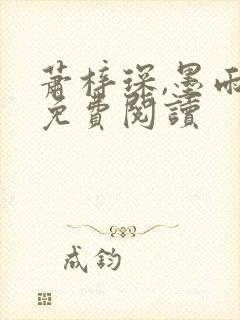 蕭梓琛,墨雨
免費閱讀
成鈞